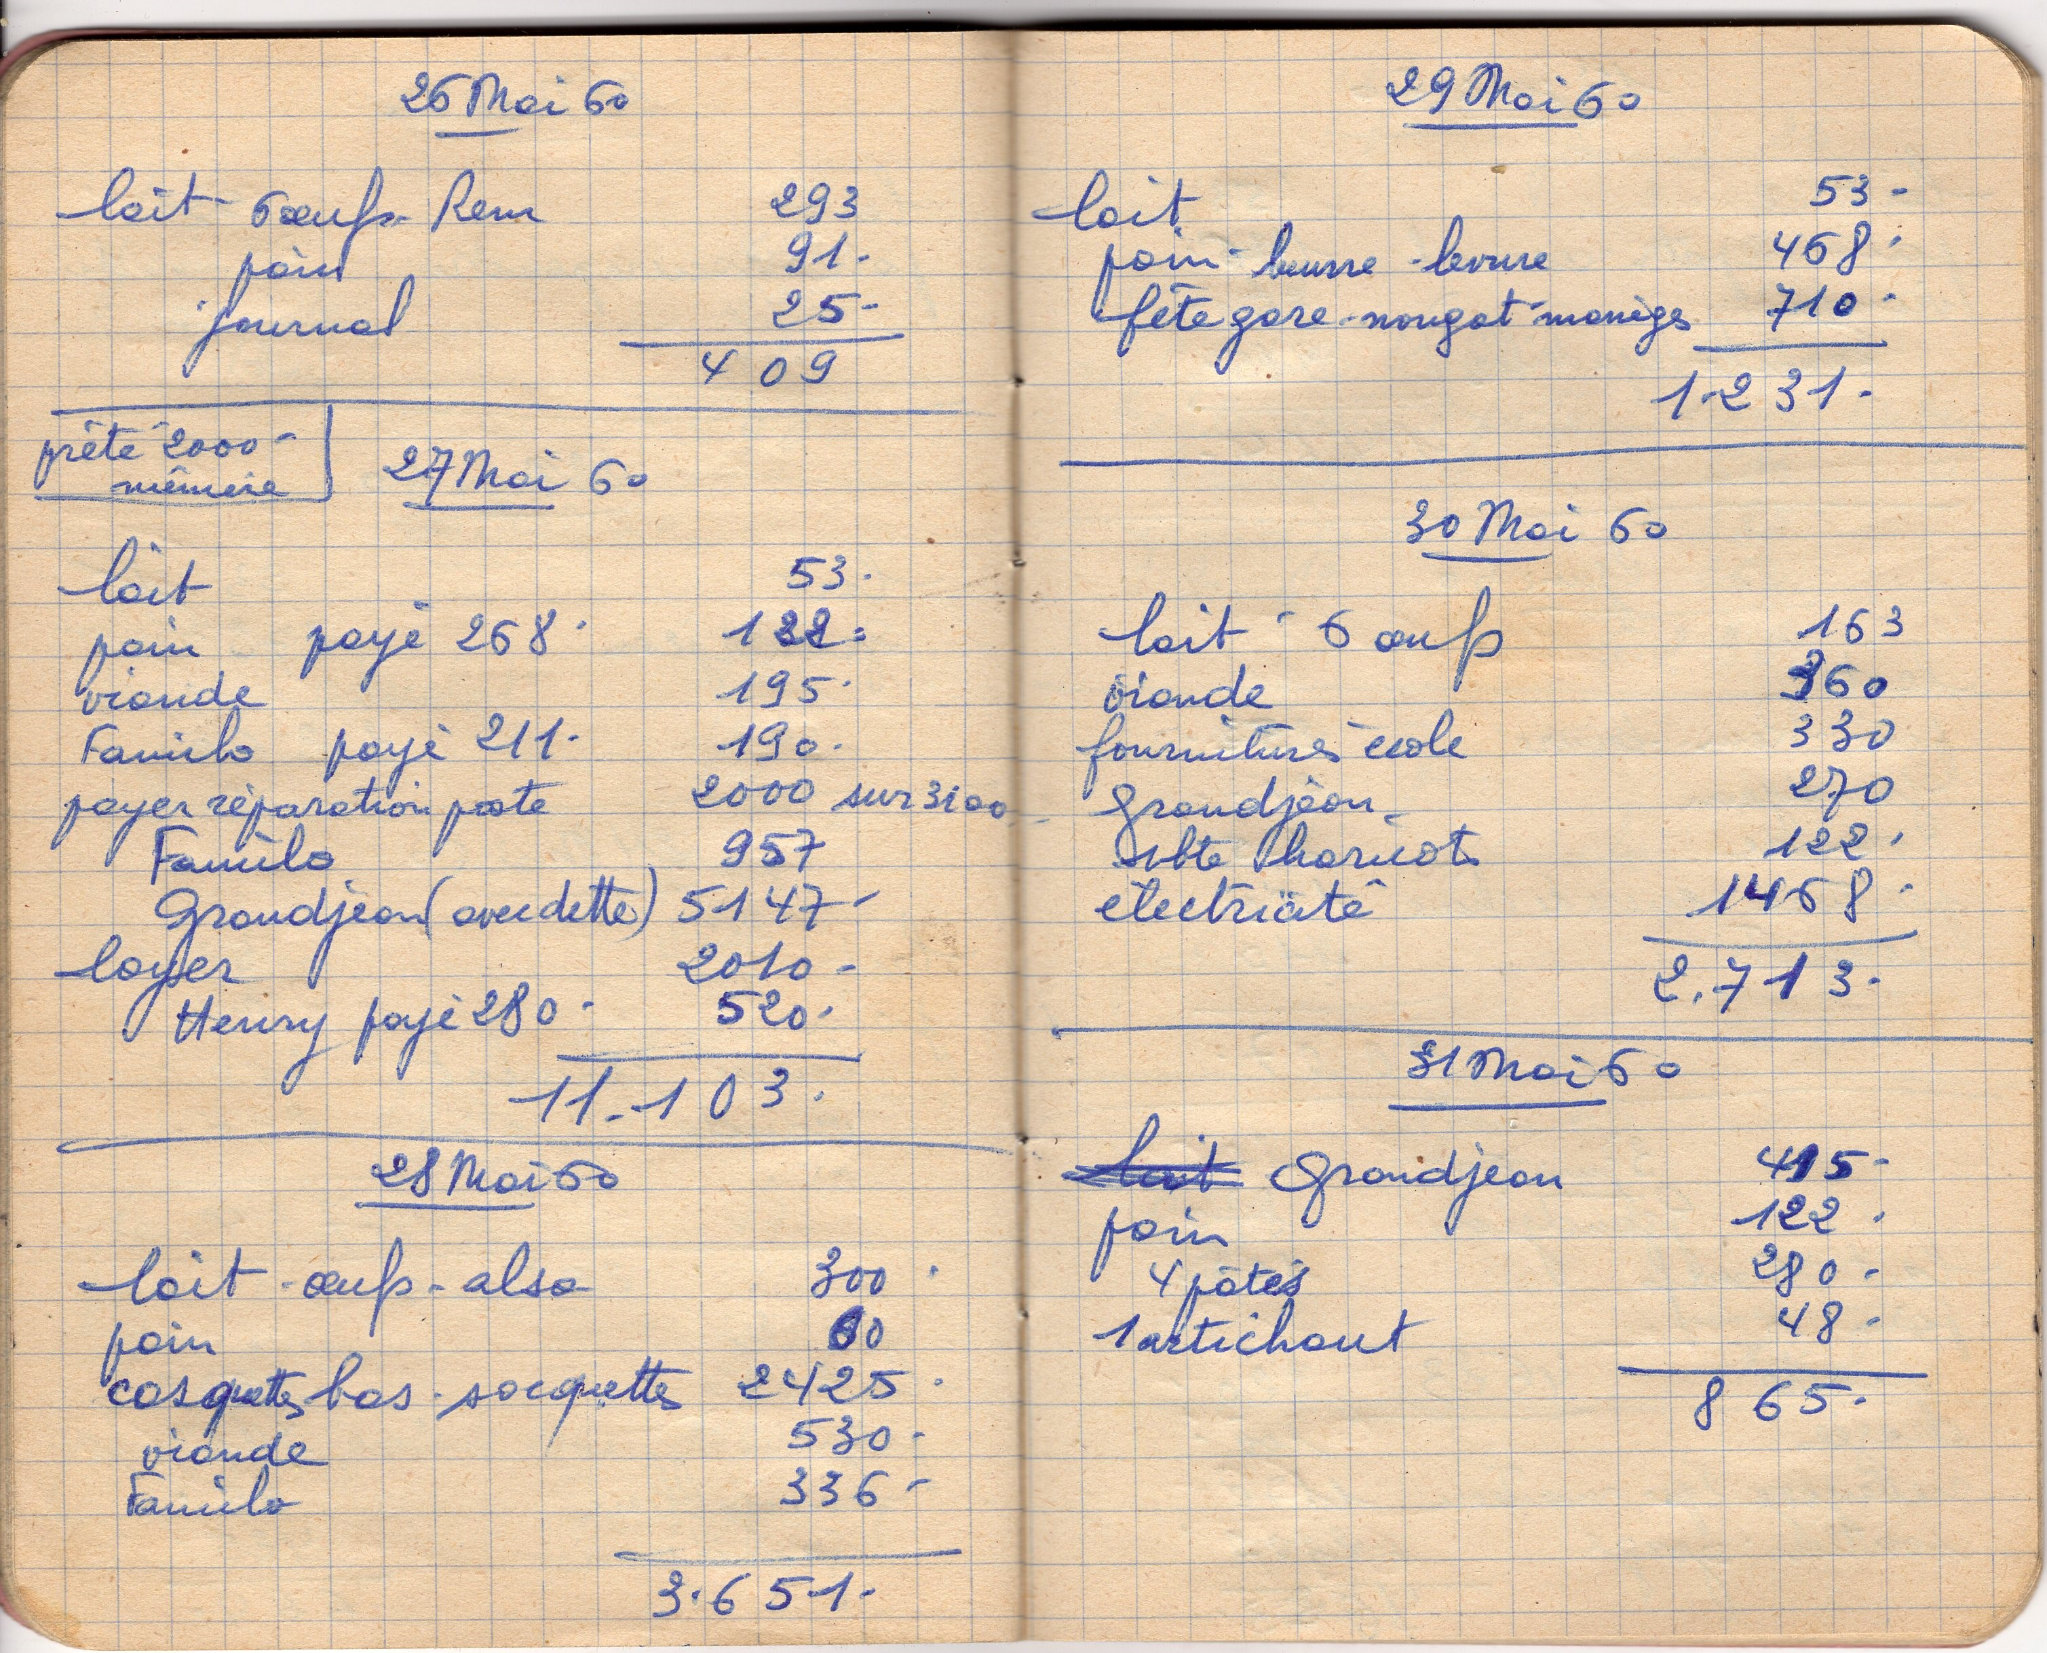 26 Mai 60
lait 6 œufs Rem 293
pain 91.
journal 25-
409
prêté 2000-
mémère
27 Mai 60
lait 53.
pain payé 268. 122.
viande 195.
Familo payé 211. 190.
payer réparation poste 2000 sur 3100
Familo 957
Grandjean (avec dette) 5147-
loyer 2010-
Henry payé 280- 520.
11.103.
28 Mai 60
lait-œufs-alsa 300.
pain 60
casquettes bas-socquettes 2425.
viande 530-
Familo 336-
3.651.
29 Mai 60
lait 53-
pain-beurre-levure 468.
fête gare-nougat manèges 710-
1.231.
30 Mai 60
lait - 6 œufs 163
viande 360
fournitures école 330
Grandjean 270
bte haricots 122.
électricité 1468-
2.713.
31 Mai 60
Grandjean 415-
pain 122.
4 pâtés 280-
1 artichaut 48-
865.